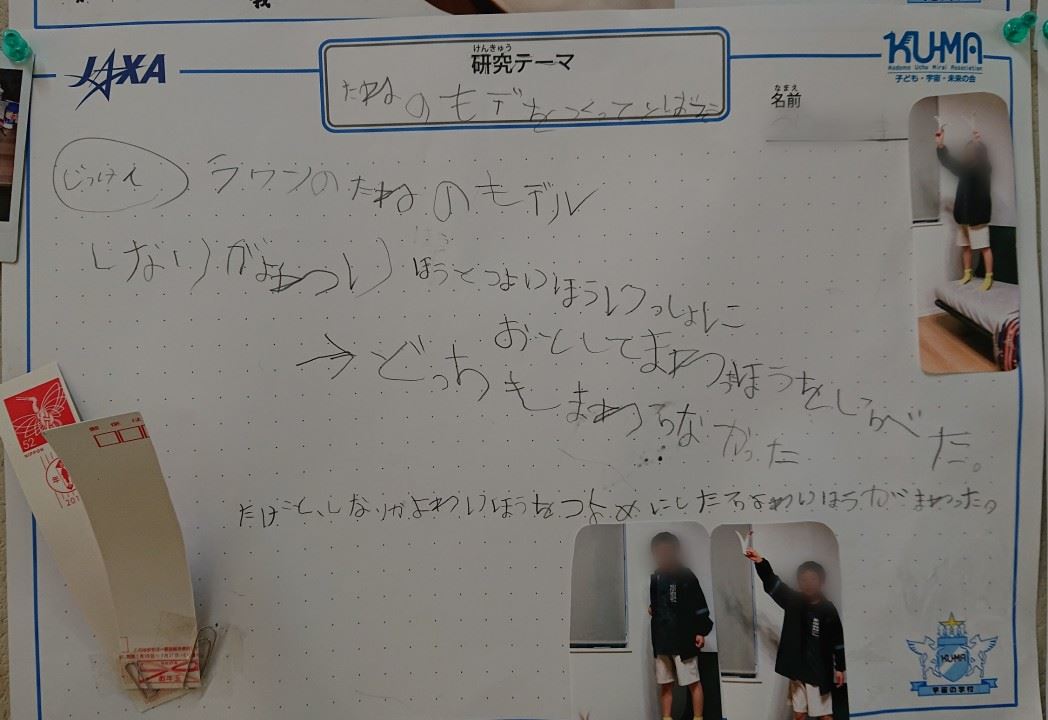 我
JAXA
けんきゅう
研究テーマ
たねのモデをつくってとばそう
なまえ
名前
KU-MA
Kodomo Uchu Mirai Association
子ども・宇宙・未来の会
じっけん
ラワンのたねのモデル
しなりがよわっいほうとつよいほういっしょに
おとしてまわっほうをしらべた。
→どっちもまわらなかった
だけど、しなりがよわいほうをつよめにしたらよわいほうがまわった。
52
NIPPON
年
201
郵便は
お年玉
KU-MA
宇宙の学校